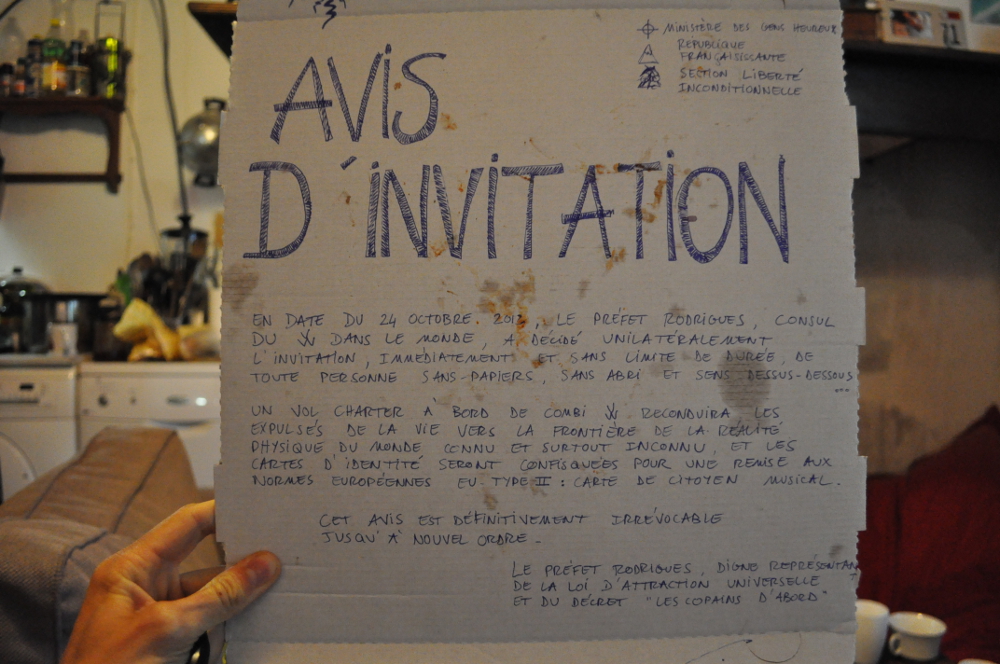 MINISTÈRE DES GENS HEUREUX
RÉPUBLIQUE
FRANÇAISISCANTE
SECTION LIBERTÉ
INCONDITIONNELLE
AVIS
D'INVITATION
EN DATE DU 24 OCTOBRE 2012, LE PRÉFET RODRIGUES, CONSUL
DU DANS LE MONDE, A DÉCIDÉ UNILATÉRALEMENT
L'INVITATION, IMMÉDIATEMENT ET SANS LIMITE DE DURÉE, DE
TOUTE PERSONNE SANS-PAPIERS, SANS ABRI ET SENS DESSUS-DESSOUS
...
UN VOL CHARTER À BORD DE COMBI RECONDUIRA LES
EXPULSÉS DE LA VIE VERS LA FRONTIÈRE DE LA RÉALITÉ
PHYSIQUE DU MONDE CONNU ET SURTOUT INCONNU, ET LES
CARTES D'IDENTITÉ SERONT CONFISQUÉES POUR UNE REMISE AUX
NORMES EUROPÉENNES EU TYPE II : CARTE DE CITOYEN MUSICAL.
CET AVIS EST DÉFINITIVEMENT IRRÉVOCABLE
JUSQU'À NOUVEL ORDRE.
LE PRÉFET RODRIGUES, DIGNE REPRÉSENTANT
DE LA LOI D'ATTRACTION UNIVERSELLE
ET DU DÉCRET "LES COPAINS D'ABORD"